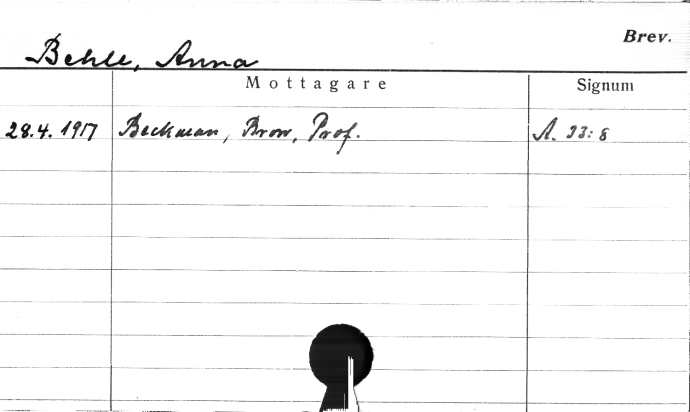 Brev.
Behle, Anna
Mottagare Signum
28.4. 1917 Beckman, Brow, Prof. A. 33: 8